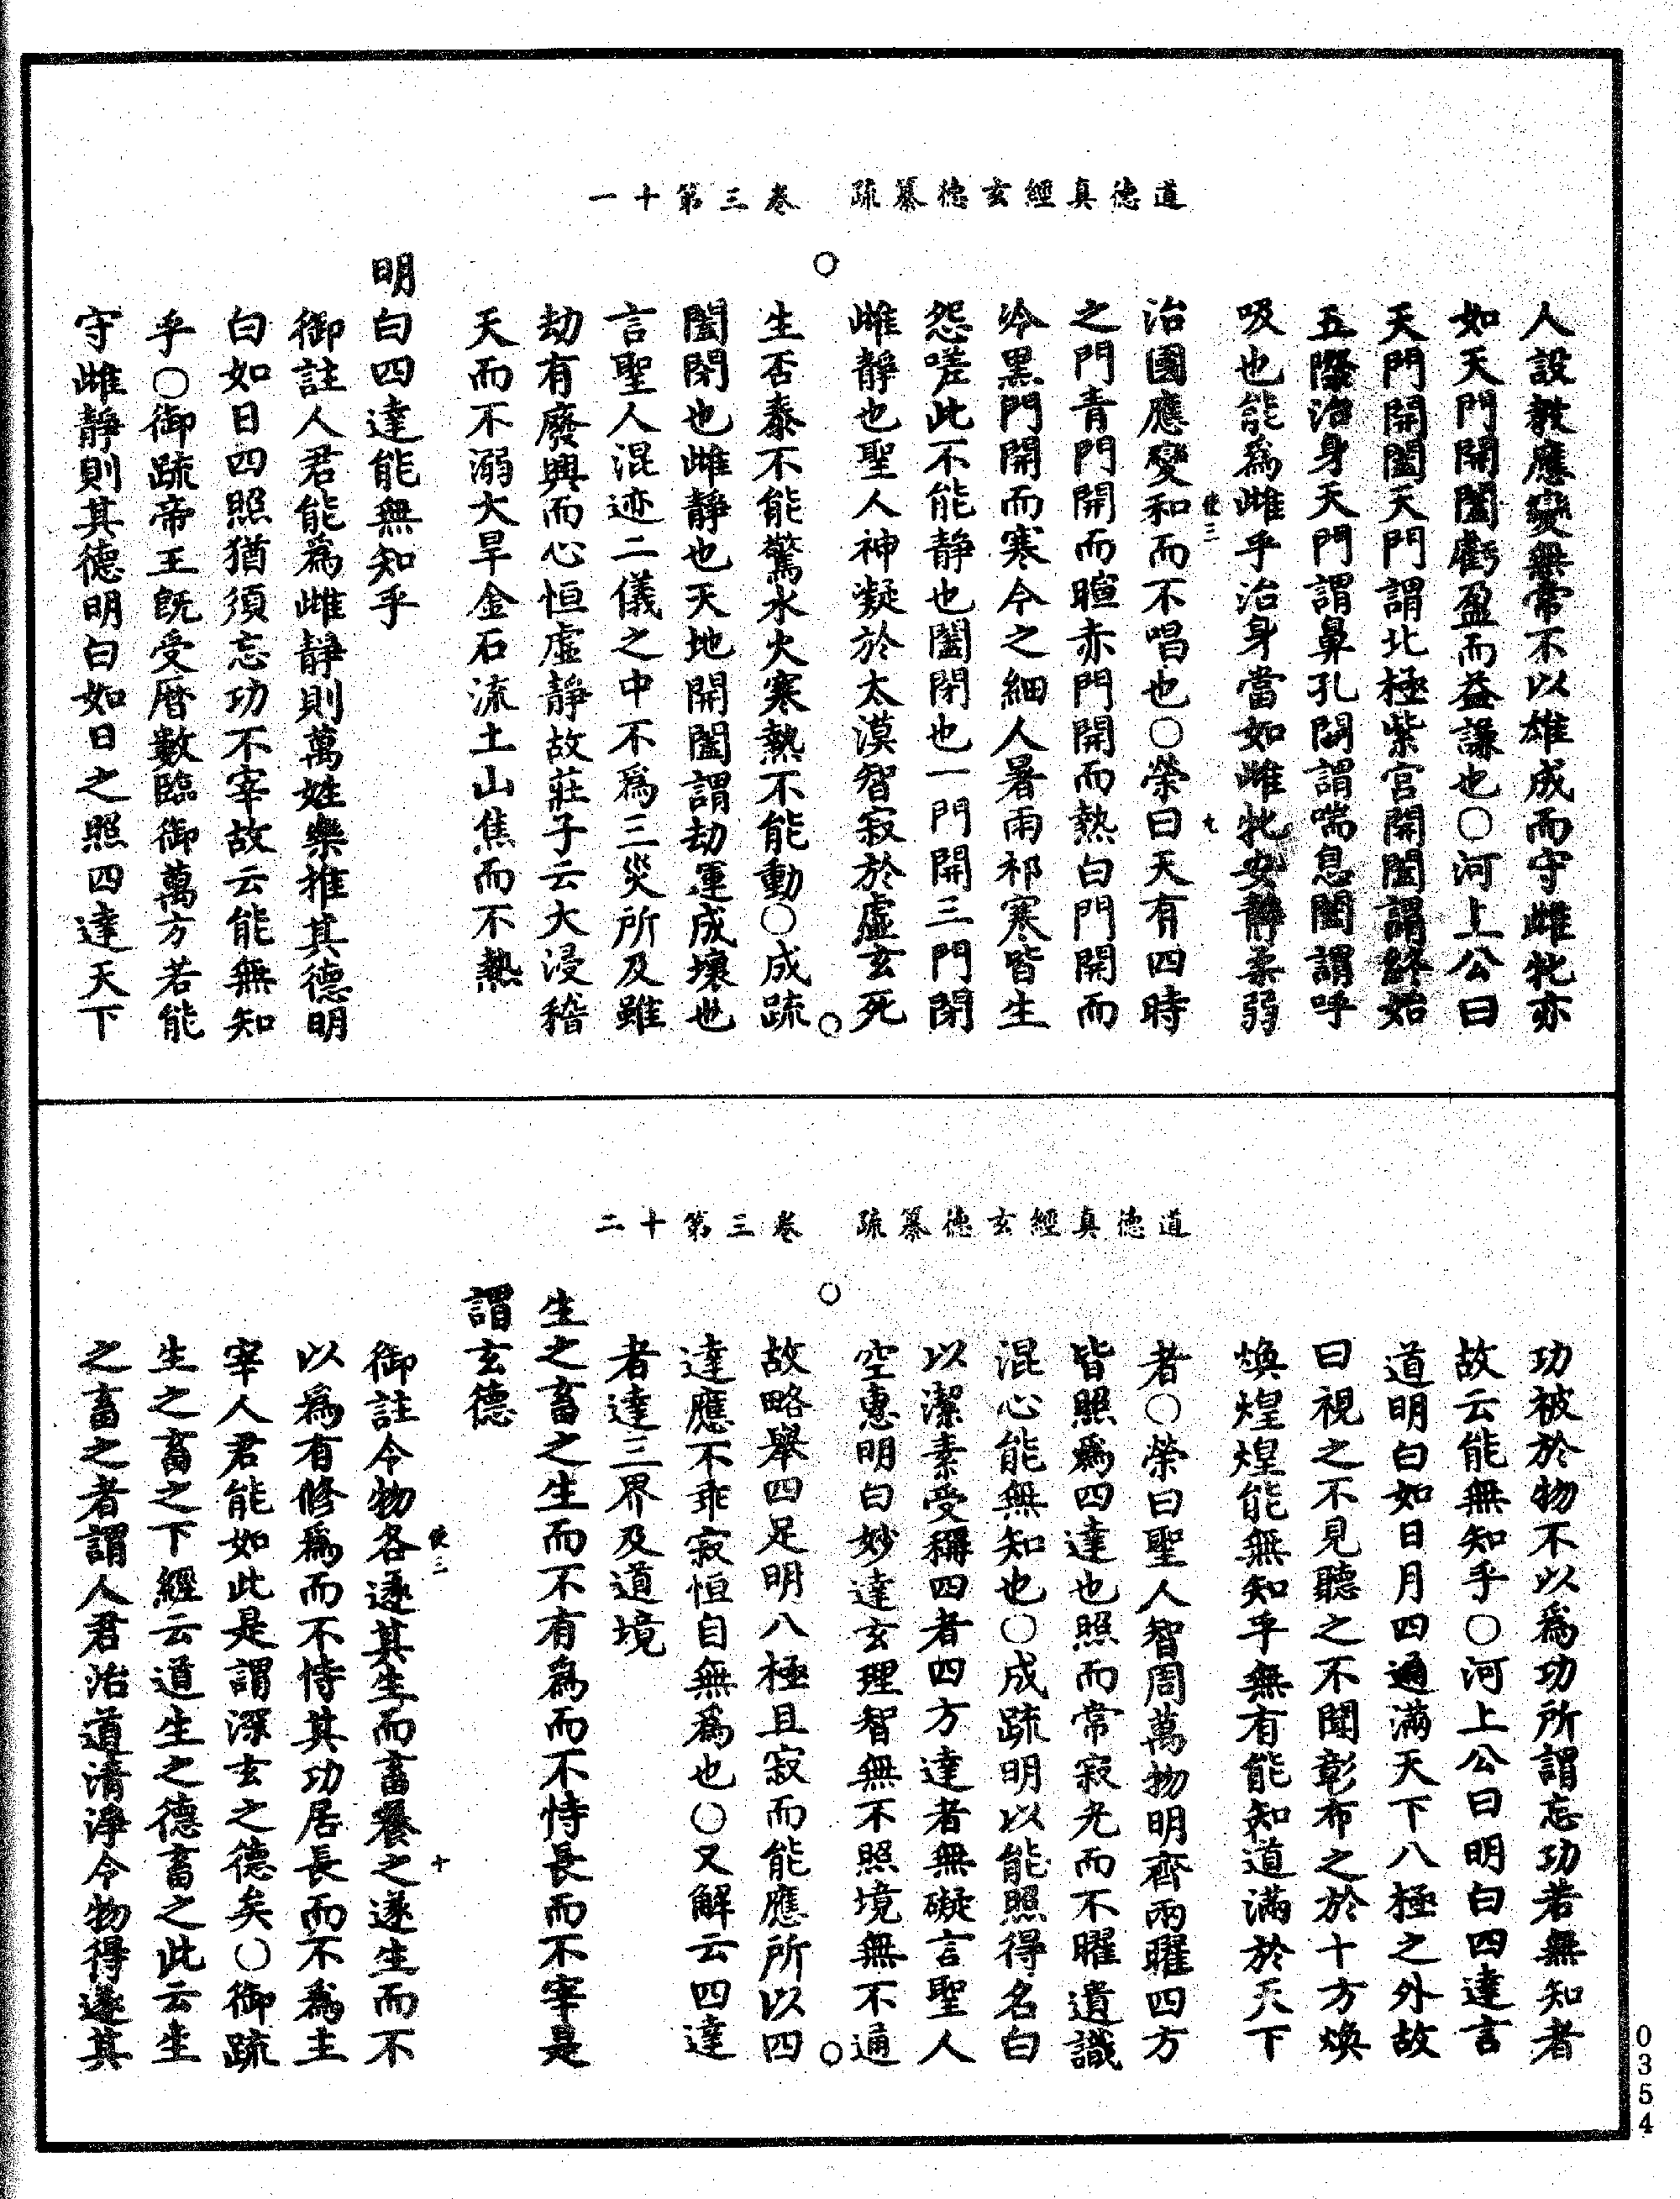 道德真經玄德纂疏　卷三第十一
人設教應變無常不以雄成而守雌牝亦
如天門開闔虧盈而益謙也○河上公曰
天門開闔天門謂北極紫宮開闔謂終始
五際治身天門謂鼻孔開謂喘息闔謂呼
吸也能為雌乎治身當如雌牝安靜柔弱
使三　九
治國應變和而不唱也○榮曰天有四時
之門青門開而暄赤門開而熱白門開而
冷黑門開而寒今之細人暑雨祁寒皆生
怨嗟此不能靜也闔閉也一門開三門閉
雌靜也聖人神凝於太漠智寂於虛玄死
○　○
生否泰不能驚水火寒熱不能動○成疏
闔閉也雌靜也天地開闔謂劫運成壞也
言聖人混迹二儀之中不為三災所及雖
劫有廢興而心恒虛靜故莊子云大浸稽
天而不溺大旱金石流土山焦而不熱
明白四達能無知乎
御註人君能為雌靜則萬姓樂推其德明
白如日四照猶須忘功不宰故云能無知
乎○御疏帝王既受曆數臨御萬方若能
守雌靜則其德明白如日之照四達天下
道德真經玄德纂疏　卷三第十二
功被於物不以為功所謂忘功若無知者
故云能無知乎○河上公曰明白四達言
道明白如日月四通滿天下八極之外故
曰視之不見聽之不聞彰布之於十方煥
煥煌煌能無知乎無有能知道滿於天下
者○榮曰聖人智周萬物明齊兩曜四方
皆照為四達也照而常寂光而不曜遺識
混心能無知也○成疏明以能照得名白
以潔素受稱四者四方達者無礙言聖人
空惠明白妙達玄理智無不照境無不通
○　○
故略舉四足明八極且寂而能應所以四
達應不乖寂恒自無為也○又解云四達
者達三界及道境
生之畜之生而不有為而不恃長而不宰是
謂玄德
使三　十
御註令物各遂其生而畜養之遂生而不
以為有修為而不恃其功居長而不為主
宰人君能如此是謂深玄之德矣○御疏
生之畜之下經云道生之德畜之此云生
之畜之者謂人君治道清淨令物得遂其
0354